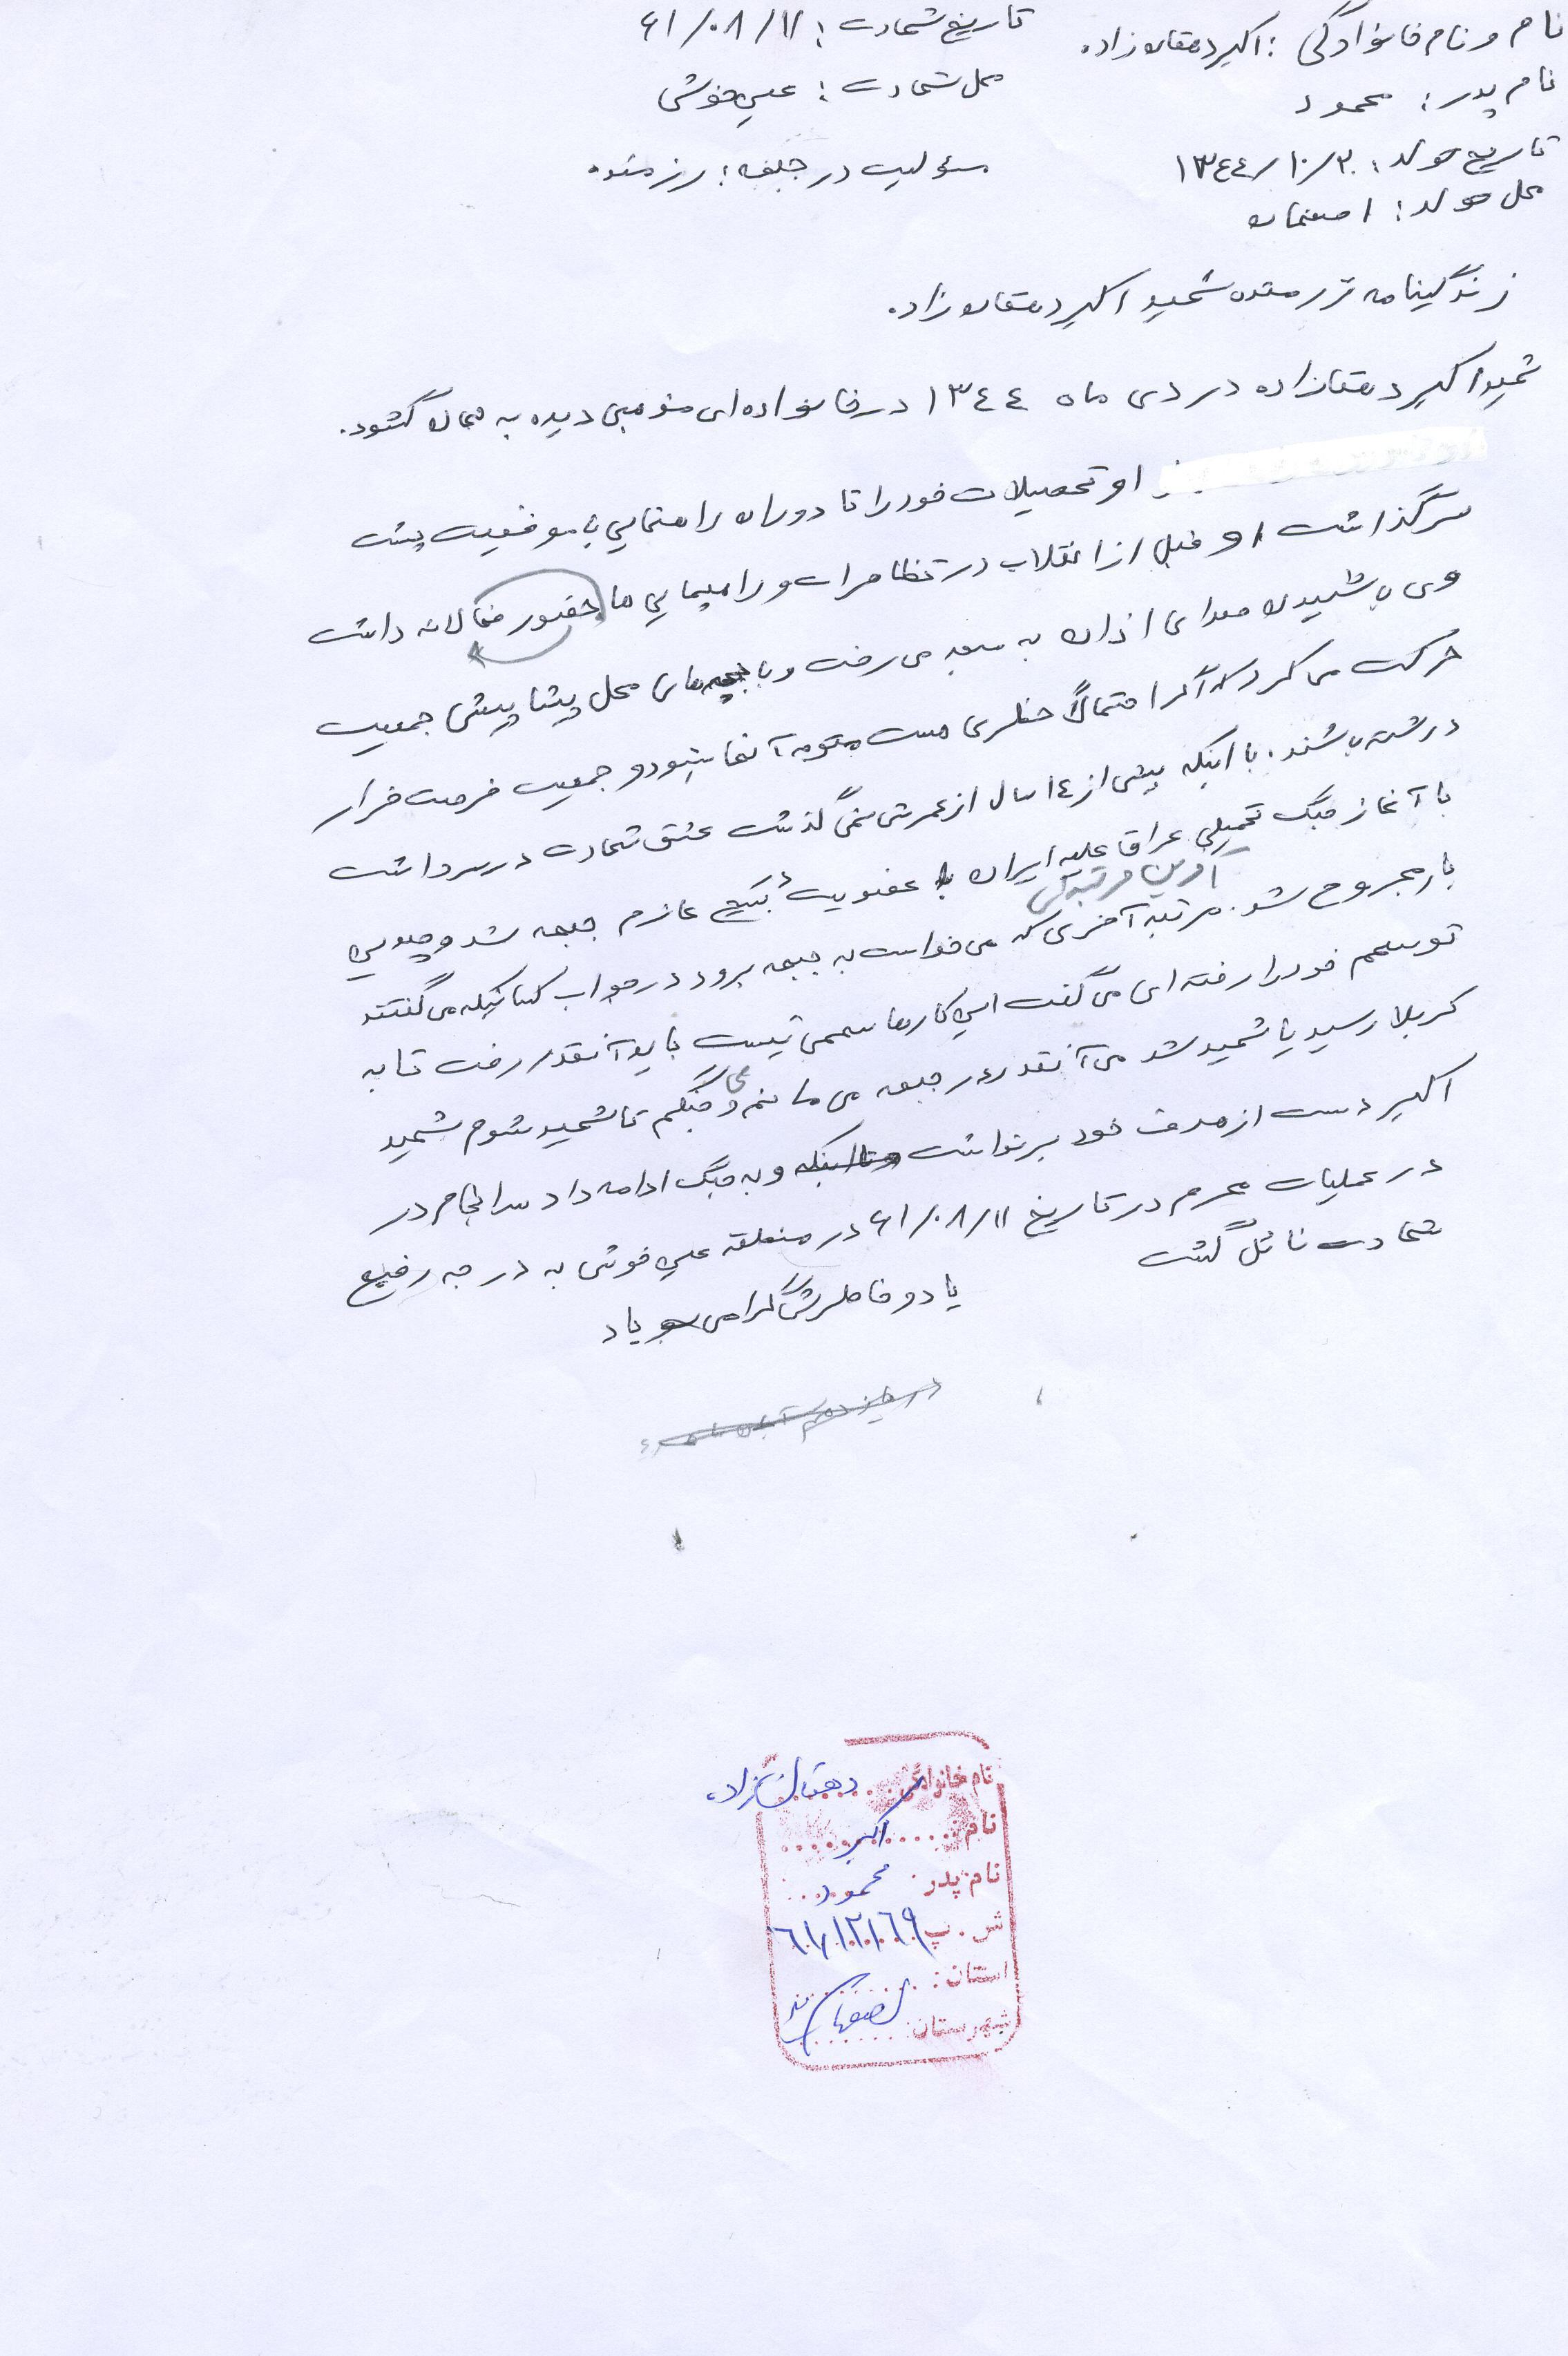 نام و نام خانوادگی : اکبر دهقان زاده
تاریخ شهادت : ۶۱/۰۸/۱۱
نام پدر : محمود
محل شهادت : عین خوش
تاریخ تولد : ۱۳۴۴/۱۰/۳۰
مسئولیت در جبهه : رزمنده
محل تولد : اصفهان
زندگینامه رزمنده شهید اکبر دهقان زاده
شهید اکبر دهقانزاده در دی ماه ۱۳۴۴ در خانواده ای مذهبی دیده به جهان گشود.
او تحصیلات خود را تا دوران راهنمایی با موفقیت پشت
سرگذاشت او قبل از انقلاب در تظاهرات و راهپیمایی ها حضور فعالانه داشت
وی با شنیدن صدای اذان به مسجد می رفت و با بچه های محل پیشاپیش جمعیت
حرکت می کرد که اگر احتمالاً خطری هست متوجه آنها بشود و جمعیت فرصت فرار
داشته باشند. با اینکه بیش از ۱۴ سال از عمرش نمی گذشت عشق شهادت در سر داشت
با آغاز جنگ تحمیلی عراق علیه ایران با عضویت بسیج عازم جبهه شد و چندین
بار مجروح شد. مرتبه آخری که می خواست به جبهه برود در جواب کسانیکه می گفتند
آخرین مرتبه ای
تو سهم خود را رفته ای می گفت این کارها سهمی نیست باید آنقدر رفت تا به
کربلا رسید یا شهید شد من آنقدر در جبهه می مانم و می جنگم تا شهید شوم شهید
اکبر دست از هدف خود برنداشت و به جنگ ادامه داد سرانجام در
در عملیات محرم در تاریخ ۶۱/۰۸/۱۱ در منطقه عین خوش به درجه رفیع
شهادت نائل گشت
یاد و خاطرش گرامی باد
نام خانوادگی دهقان زاده
نام اکبر
نام پدر محمود
ش . پ ۶۱۱۲۱۶۹
استان :
شهرستان : اصفهان